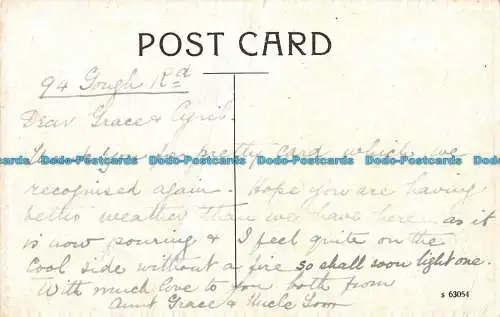 POST CARD
94 Gough Rd
Dear Grace & Cyril.
Thank you for pretty card which we
recognised again. Hope you are having
better weather than we have here as it
is now pouring & I feel quite on the
Cool side without a fire so shall soon light one.
With much love to you both from
Aunt Grace & Uncle Tom
S 63054